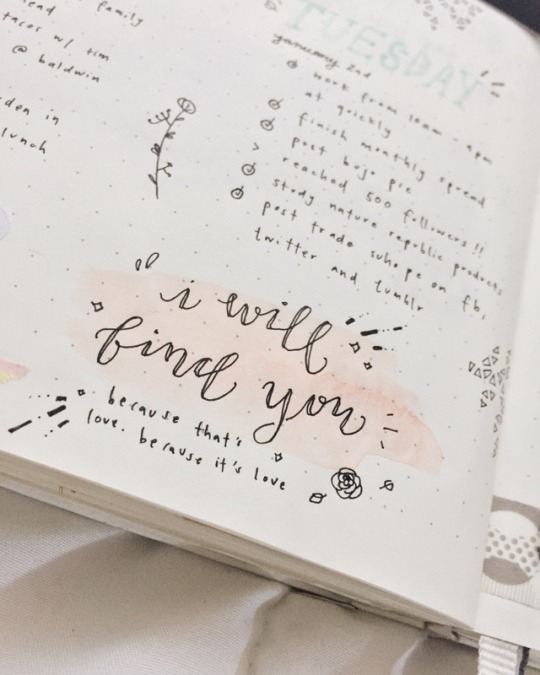 family
tacos w/ tim
@ baldwin
lunch
TUESDAY
january 2nd
work from 10am - 4pm
at quickly
finish monthly spread
post bujo pic
reached 500 followers!!
study nature republic products
post trade suho pc on fb,
twitter and tumblr
i will
find you
because that's
love. because it's love